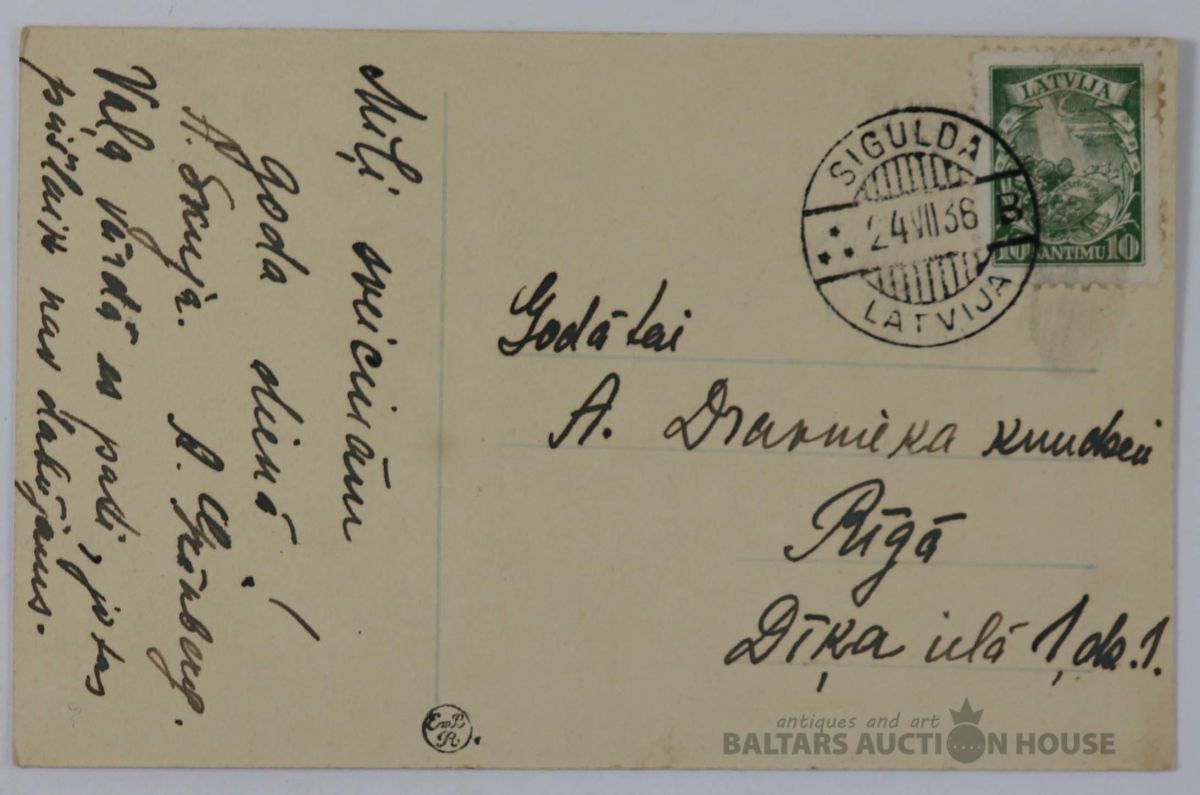 Mīļi sveicinām
goda dienā!
A. Skuja. A. Grünberg.
Vaļa vārdā es pati, jo tas
pašlaik nav dabūjams.
LATVIJA
10 SANTIMU 10
SIGULDA
24 VII 36 B
LATVIJA
Godātai
A. Dravnieka kundzei
Rīgā
Dīķa ielā 1, dz. 1.
antiques and art
BALTARS AUCTION HOUSE